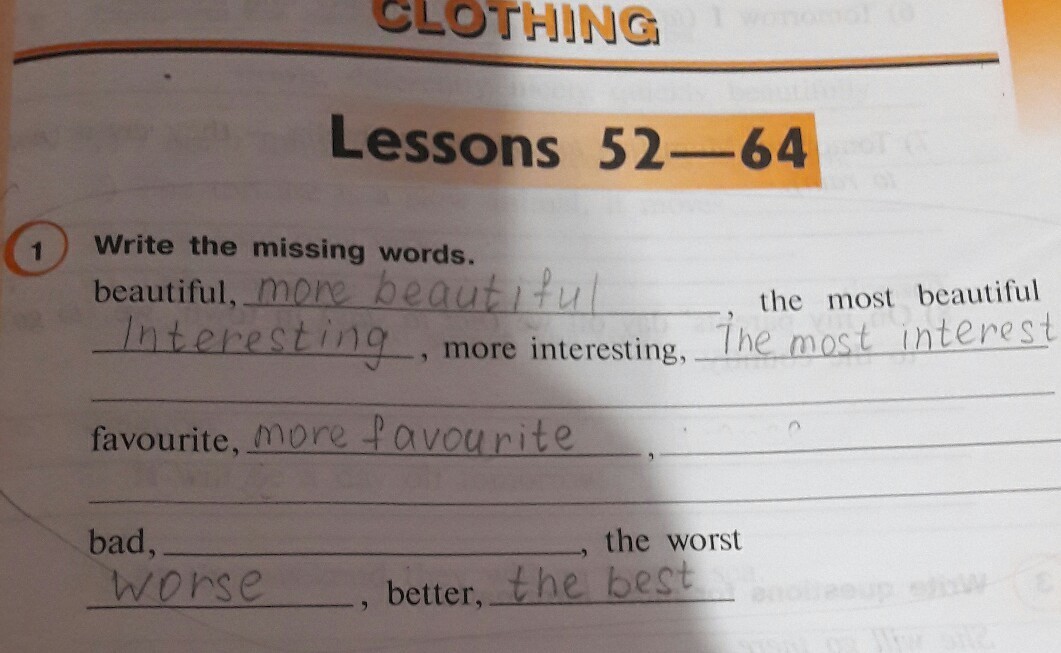 CLOTHING
Lessons 52—64
1 Write the missing words.
beautiful, more beautiful, the most beautiful
Interesting, more interesting, The most interest
favourite, more favourite,
bad, , the worst
worse, better, the best